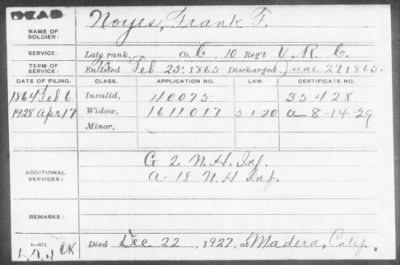 DEAD
NAME OF SOLDIER: Noyes, Frank F.
SERVICE: Late rank, Co. C, 10 Reg't V. R. C.
TERM OF SERVICE: Enlisted Feb 25, 1865 Discharged June 27, 1865.
DATE OF FILING. CLASS. APPLICATION NO. LAW. CERTIFICATE NO.
1864 Feb 6 Invalid, 40075 35428
1928 Apr 17 Widow, 1611017 5-1-20 a-8-14-29
Minor,
ADDITIONAL SERVICES: G 2 N.H. Inf.
a 18 N H Inf.
REMARKS:
Died Dec 22, 1927, at Madera, Calif.